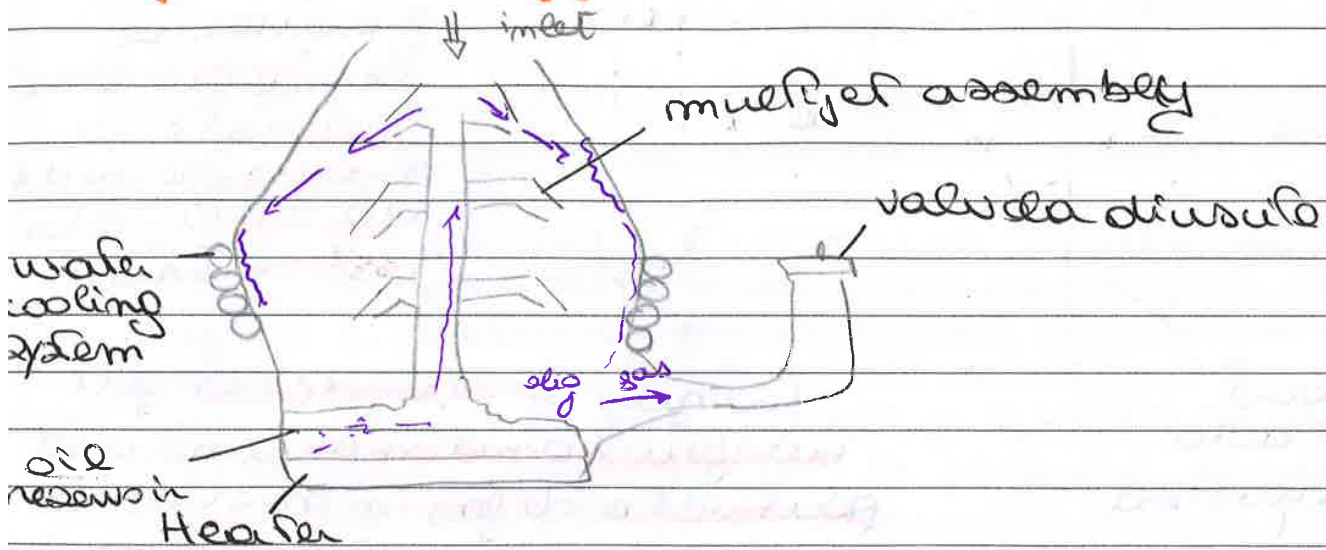 inlet
multijet assembly
valvola di uscita
water
cooling
system
olio gas
oil
reservoir
Heater